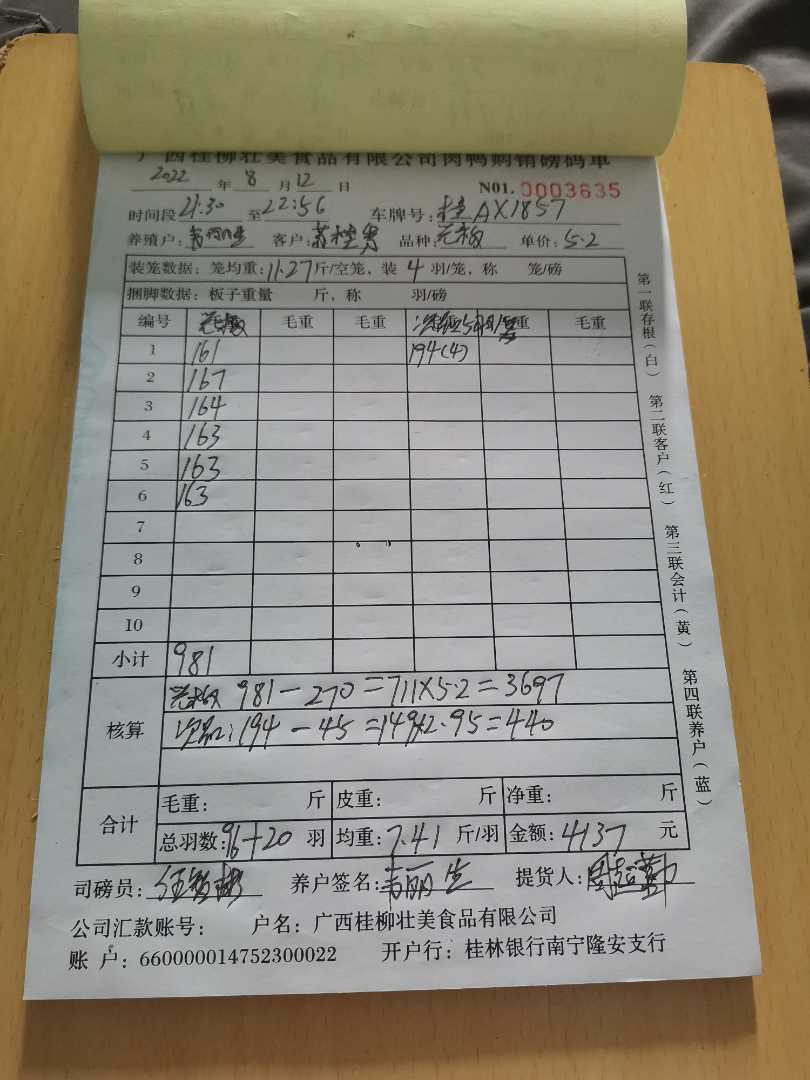 广西桂柳壮美食品有限公司肉鸭购销磅码单
2022 年 8 月 12 日 N01. 0003635
时间段 21:30 至 22:56 车牌号: 桂AX1857
养殖户: 客户: 品种: 单价: 5.2
装笼数据: 笼均重: 11.27 斤/空笼, 装 4 羽/笼, 称 笼/磅
捆脚数据: 板子重量 斤, 称 羽/磅
编号 毛重 毛重 毛重
1 161 194(4)
2 167
3 164
4 163
5 163
6 163
7
8
9
10
小计 981
核算
981-270=711×5.2=3697
次品:194-45=149×2.95=440
合计
毛重: 斤 皮重: 斤 净重: 斤
总羽数: 96+20 羽 均重: 7.41 斤/羽 金额: 4137 元
司磅员: 养户签名: 韦丽生 提货人:
公司汇款账号: 户名: 广西桂柳壮美食品有限公司
账 户: 660000014752300022 开户行: 桂林银行南宁隆安支行
第一联存根(白) 第二联客户(红) 第三联会计(黄) 第四联养户(蓝)